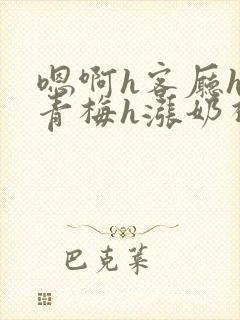 嗯啊h客厅h
青梅h涨奶
巴克莱